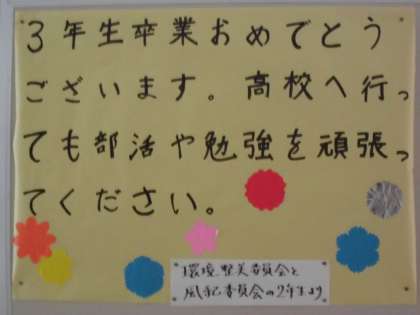 3年生卒業おめでとう
ございます。高校へ行っ
ても部活や勉強を頑張っ
てください。
環境整美委員会と
風紀委員会の2年生より